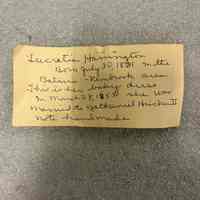 Lucretia Harrington
Born July 30 1831 in the
area
This is her baby dress
In March 28, 1855 she was
married to Nathaniel Hinckley II
Note handmade